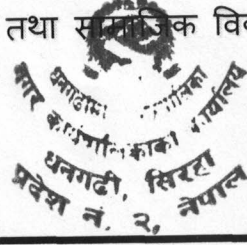 तथा सामाजिक वि
धनगढीमा
नगर कार्यपालिकाको कार्यालय
धनगढी, सिरहा
प्रदेश नं. २, नेपाल